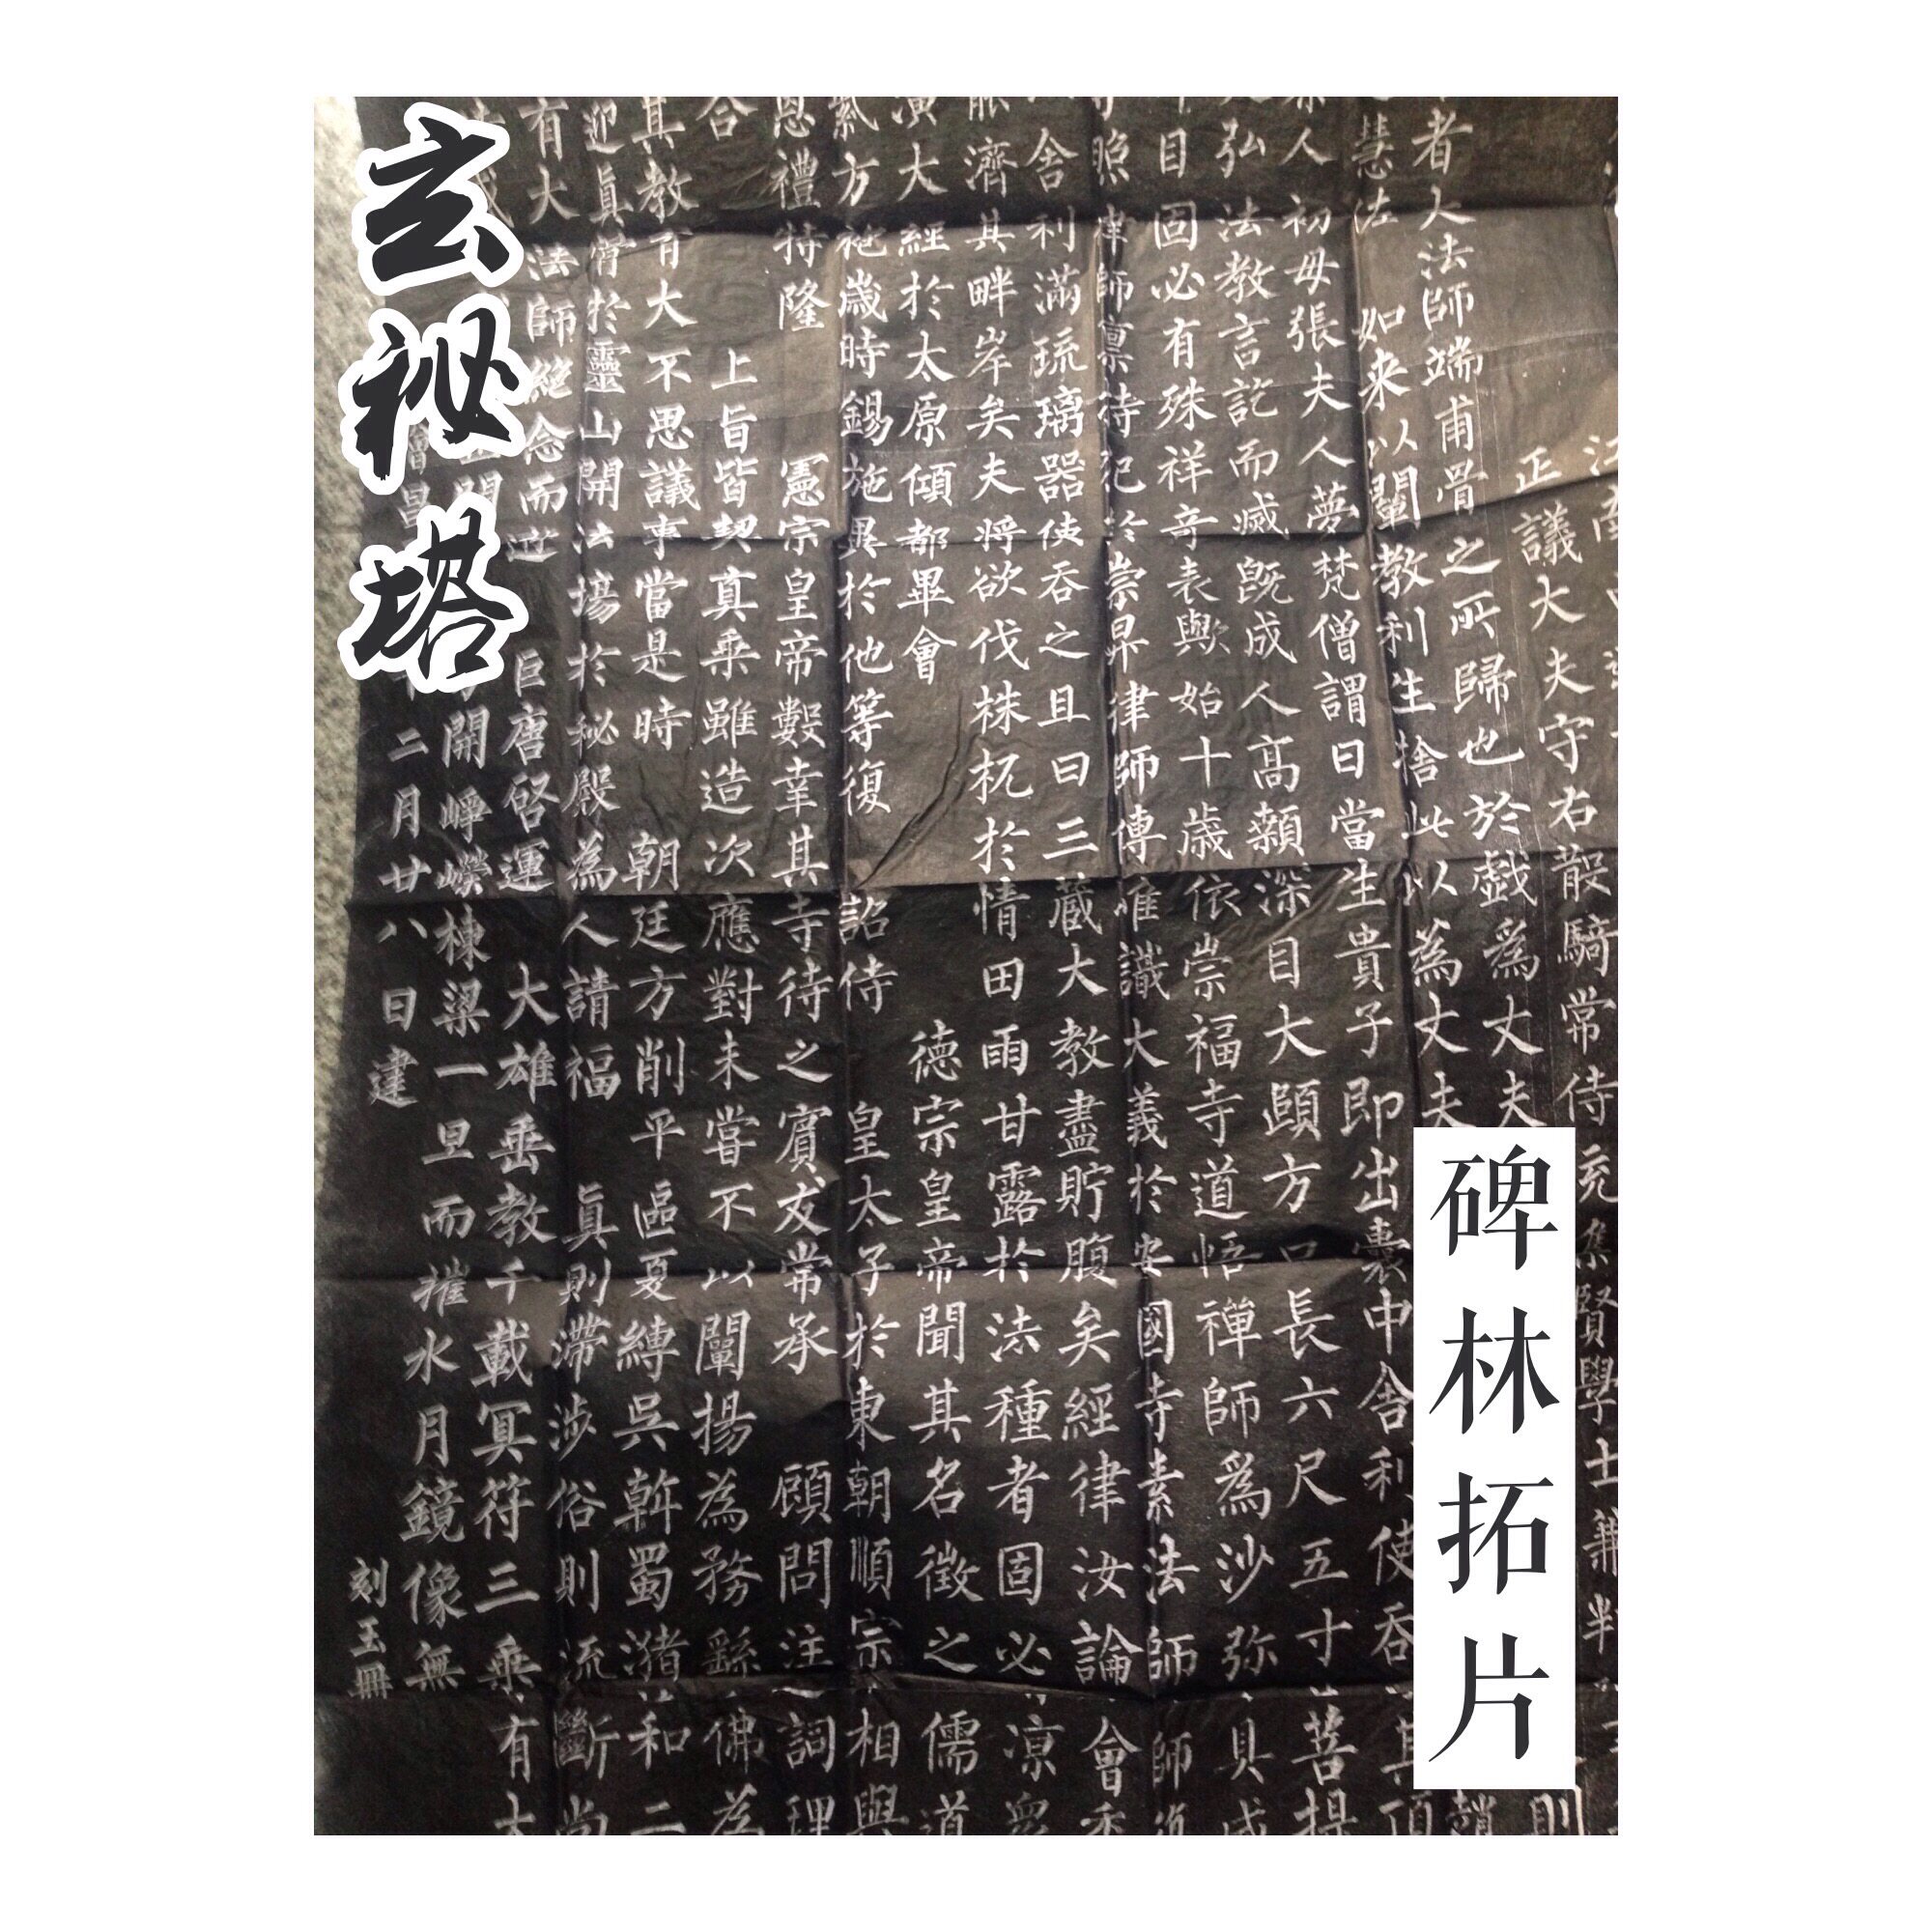 玄祕塔
碑林拓片
正議大夫守右散騎常侍充集賢學士兼判
者人法師端甫骨之所歸也於戲為丈夫
慧法如来以闡教利生捨此以為丈夫
人初母張夫人夢梵僧謂曰當生貴子即出囊中舍利使吞
弘法教言訖而滅既成人高顙深目大頤方口長六尺五寸菩提
目固必有殊祥奇表歟始十歲依崇福寺道悟禪師為沙弥具戒
照律師稟持犯於崇昇律師傳唯識大義於安國寺素法師師
舍利滿琉璃器使吞之且曰三藏大教盡貯腹矣經律汝論會
濟其畔岸矣夫將欲伐株杌於情田雨甘露於法種者固必凉眾
演大經於太原傾都畢會德宗皇帝聞其名徵之儒道
紫方袍歲時錫施異於他等復詔侍皇太子於東朝順宗相與
恩禮特隆憲宗皇帝數幸其寺待之賓友常承顧問注詞理
合上旨皆契真乘雖造次應對未嘗不以闡揚為務繇佛為
其教有大不思議事當是時朝廷方削平區夏縛吳斡蜀瀦和二
迎真骨於靈山開法場於秘殿為人請福真則滯涉俗則流斷尚
有大法師絕念而逝巨唐啓運大雄垂教千載冥符三乘有大
開崢嶸棟梁一旦而摧水月鏡像無
二月廿八日建
刻玉冊